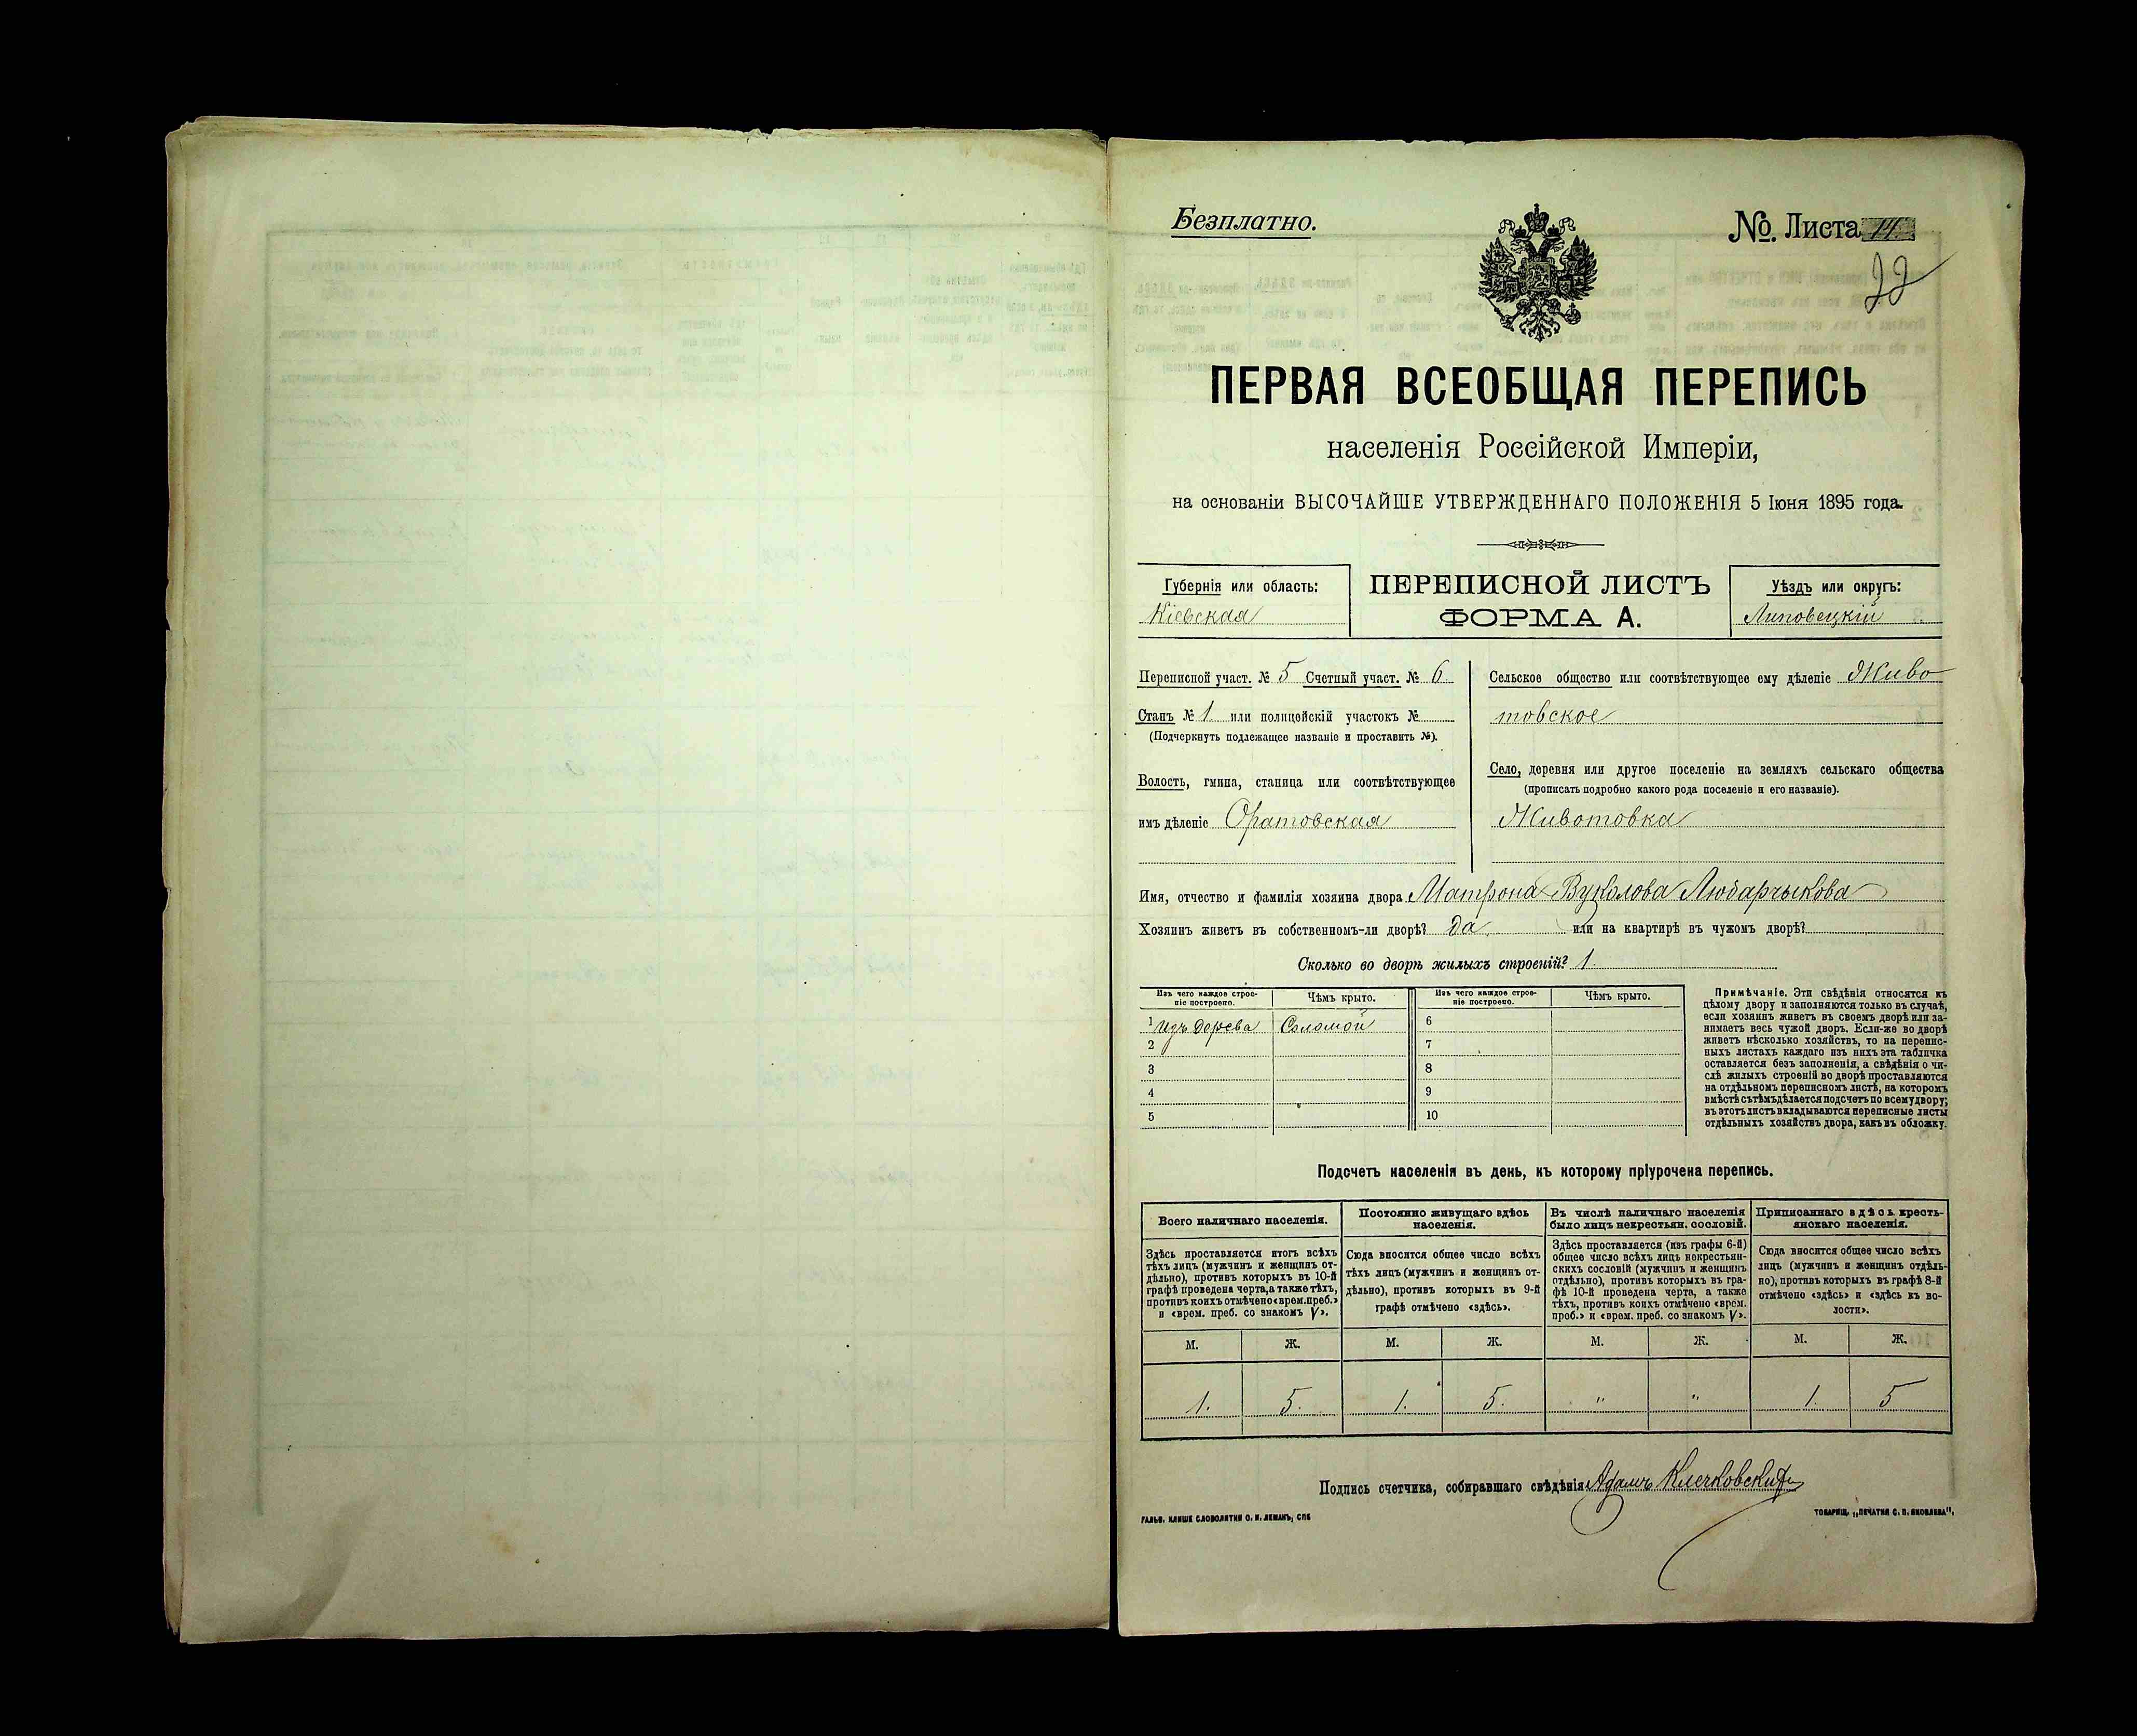 Безплатно.
№. Листа 14.
22
ПЕРВАЯ ВСЕОБЩАЯ ПЕРЕПИСЬ
населенія Россійской Имперіи,
на основаніи ВЫСОЧАЙШЕ УТВЕРЖДЕННАГО ПОЛОЖЕНІЯ 5 Іюня 1895 года.
Губернія или область:
Кіевская
ПЕРЕПИСНОЙ ЛИСТЪ
ФОРМА А.
Уѣздъ или округъ:
Липовецкій
Переписной участ. № 5 Счетный участ. № 6
Станъ № 1 или полицейскій участокъ №
(Подчеркнуть подлежащее названіе и проставить №).
Волость, гмина, станица или соотвѣтствующее
имъ дѣленіе Оратовская
Сельское общество или соотвѣтствующее ему дѣленіе Живо
товское
Село, деревня или другое поселеніе на земляхъ сельскаго общества
(прописать подробно какого рода поселеніе и его названіе).
Животовка
Имя, отчество и фамилія хозяина двора Матрона Вуколова Любарчыкова
Хозяинъ живетъ въ собственномъ-ли дворѣ? да или на квартирѣ въ чужомъ дворѣ?
Сколько во дворѣ жилыхъ строеній? 1.
Изъ чего каждое строе-
ніе построено.
Чѣмъ крыто.
Изъ чего каждое строе-
ніе построено.
Чѣмъ крыто.
1 изъ дерева Соломой 6
2 7
3 8
4 9
5 10
Примѣчаніе. Эти свѣдѣнія относятся къ
цѣлому двору и заполняются только въ случаѣ,
если хозяинъ живетъ въ своемъ дворѣ или за-
нимаетъ весь чужой дворъ. Если-же во дворѣ
живетъ нѣсколько хозяйствъ, то на перепис-
ныхъ листахъ каждаго изъ нихъ эта табличка
оставляется безъ заполненія, а свѣдѣнія о чи-
слѣ жилыхъ строеній во дворѣ проставляются
на отдѣльномъ переписномъ листѣ, на которомъ
вмѣстѣ съ тѣмъ дѣлается подсчетъ по всему двору;
въ этотъ листъ вкладываются переписные листы
отдѣльныхъ хозяйствъ двора, какъ въ обложку.
Подсчетъ населенія въ день, къ которому пріурочена перепись.
Всего наличнаго населенія.
Постоянно живущаго здѣсь
населенія.
Въ числѣ наличнаго населенія
было лицъ некрестьян. сословій.
Приписаннаго здѣсь кресть-
янскаго населенія.
Здѣсь проставляется итогъ всѣхъ
тѣхъ лицъ (мужчинъ и женщинъ от-
дѣльно), противъ которыхъ въ 10-й
графѣ проведена черта, а также тѣхъ,
противъ коихъ отмѣчено «врем. преб.»
и «врем. преб. со знакомъ V».
Сюда вносится общее число всѣхъ
тѣхъ лицъ (мужчинъ и женщинъ от-
дѣльно), противъ которыхъ въ 9-й
графѣ отмѣчено «здѣсь».
Здѣсь проставляется (изъ графы 6-й)
общее число всѣхъ лицъ некрестьян-
скихъ сословій (мужчинъ и женщинъ
отдѣльно), противъ которыхъ въ гра-
фѣ 10-й проведена черта, а также
тѣхъ, противъ коихъ отмѣчено «врем.
преб.» и «врем. преб. со знакомъ V».
Сюда вносится общее число всѣхъ
лицъ (мужчинъ и женщинъ отдѣль-
но), противъ которыхъ въ графѣ 8-й
отмѣчено «здѣсь» и «здѣсь къ во-
лости».
М. Ж. М. Ж. М. Ж. М. Ж.
1. 5. 1. 5. " " 1. 5
Подпись счетчика, собиравшаго свѣдѣнія Адамъ Клечковскій
ГАЛЬВ. КЛИШЕ СЛОВОЛИТНИ О. И. ЛЕМАНЪ, СПБ
ТОВАРИЩ. „ПЕЧАТНЯ С. П. ЯКОВЛЕВА",